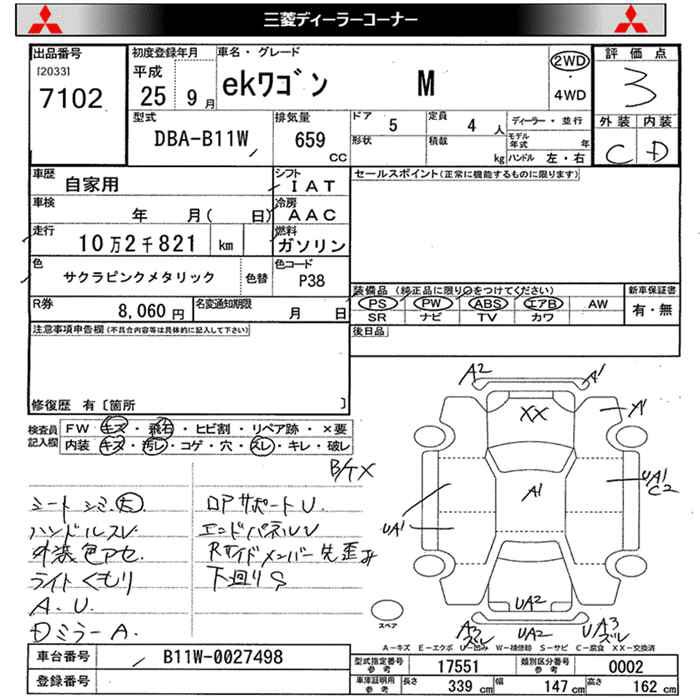 三菱ディーラーコーナー
出品番号
[2033]
7102
初度登録年月
平成
25 9 月
車名・グレード
ekワゴン M
2WD
・
4WD
評価点
3
外装 内装
C D
型式
DBA-B11W
排気量
659
CC
ドア 5
定員 4 人
ディーラー・並行
形状
積載 kg
モデル年式 年
ハンドル 左・右
車歴
自家用
シフト
IAT
セールスポイント(正常に機能するものに限ります)
車検
年 月( 日)
冷房
AAC
走行
10万2千821 km
燃料
ガソリン
色
サクラピンクメタリック
色替
色コード
P38
装備品 (純正品に限り○をつけてください)
新車保証書
PS PW ABS エアB AW
有・無
SR ナビ TV カワ
R券
8,060 円
名変通知期限
月 日
後日品
注意事項申告欄(不具合内容等は具体的に記入して下さい)
修復歴 有〔箇所 〕
検査員
記入欄
FW キズ・飛石・ヒビ割・リペア跡・×要
内装 キズ・汚レ・コゲ・穴・スレ・キレ・破レ
シート シミ 大.
ハンドルスレ
外装色アセ.
ライトくもり
A. U.
Dミラー A.
ロアサポートU.
エンドパネルU
Rサイドメンバー先歪み
下廻りS
A2
A1
XX
A1
UA1
C2
A1
UA1
UA2
A3
ズレ
UA2
UA3
ズレ
スペア
A-キズ E-エクボ U-凹み W-補修跡 S-サビ C-腐食 XX-交換済
車台番号
B11W-0027498
登録番号
型式指定番号
参考
17551
類別区分番号
参考
0002
車庫証明用
参考
長さ 339 cm
幅 147 cm
高さ 162 cm